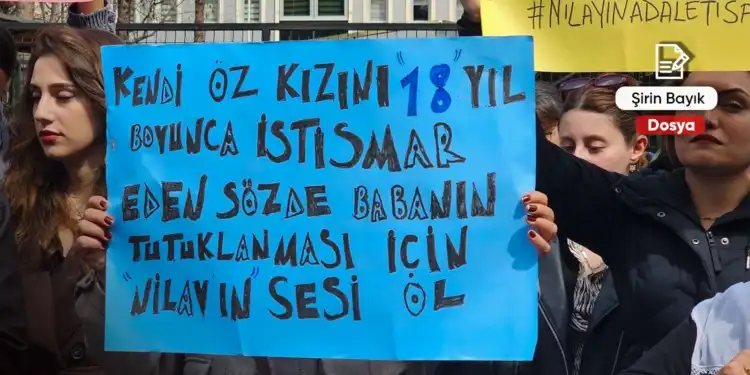 #NİLAYINADALETİSE
Şirin Bayık
Dosya
KENDİ ÖZ KIZINI "18" YIL
BOYUNCA İSTİSMAR
EDEN SÖZDE BABANIN
TUTUKLANMASI İÇİN
"NİLAY'IN" SESİ OL